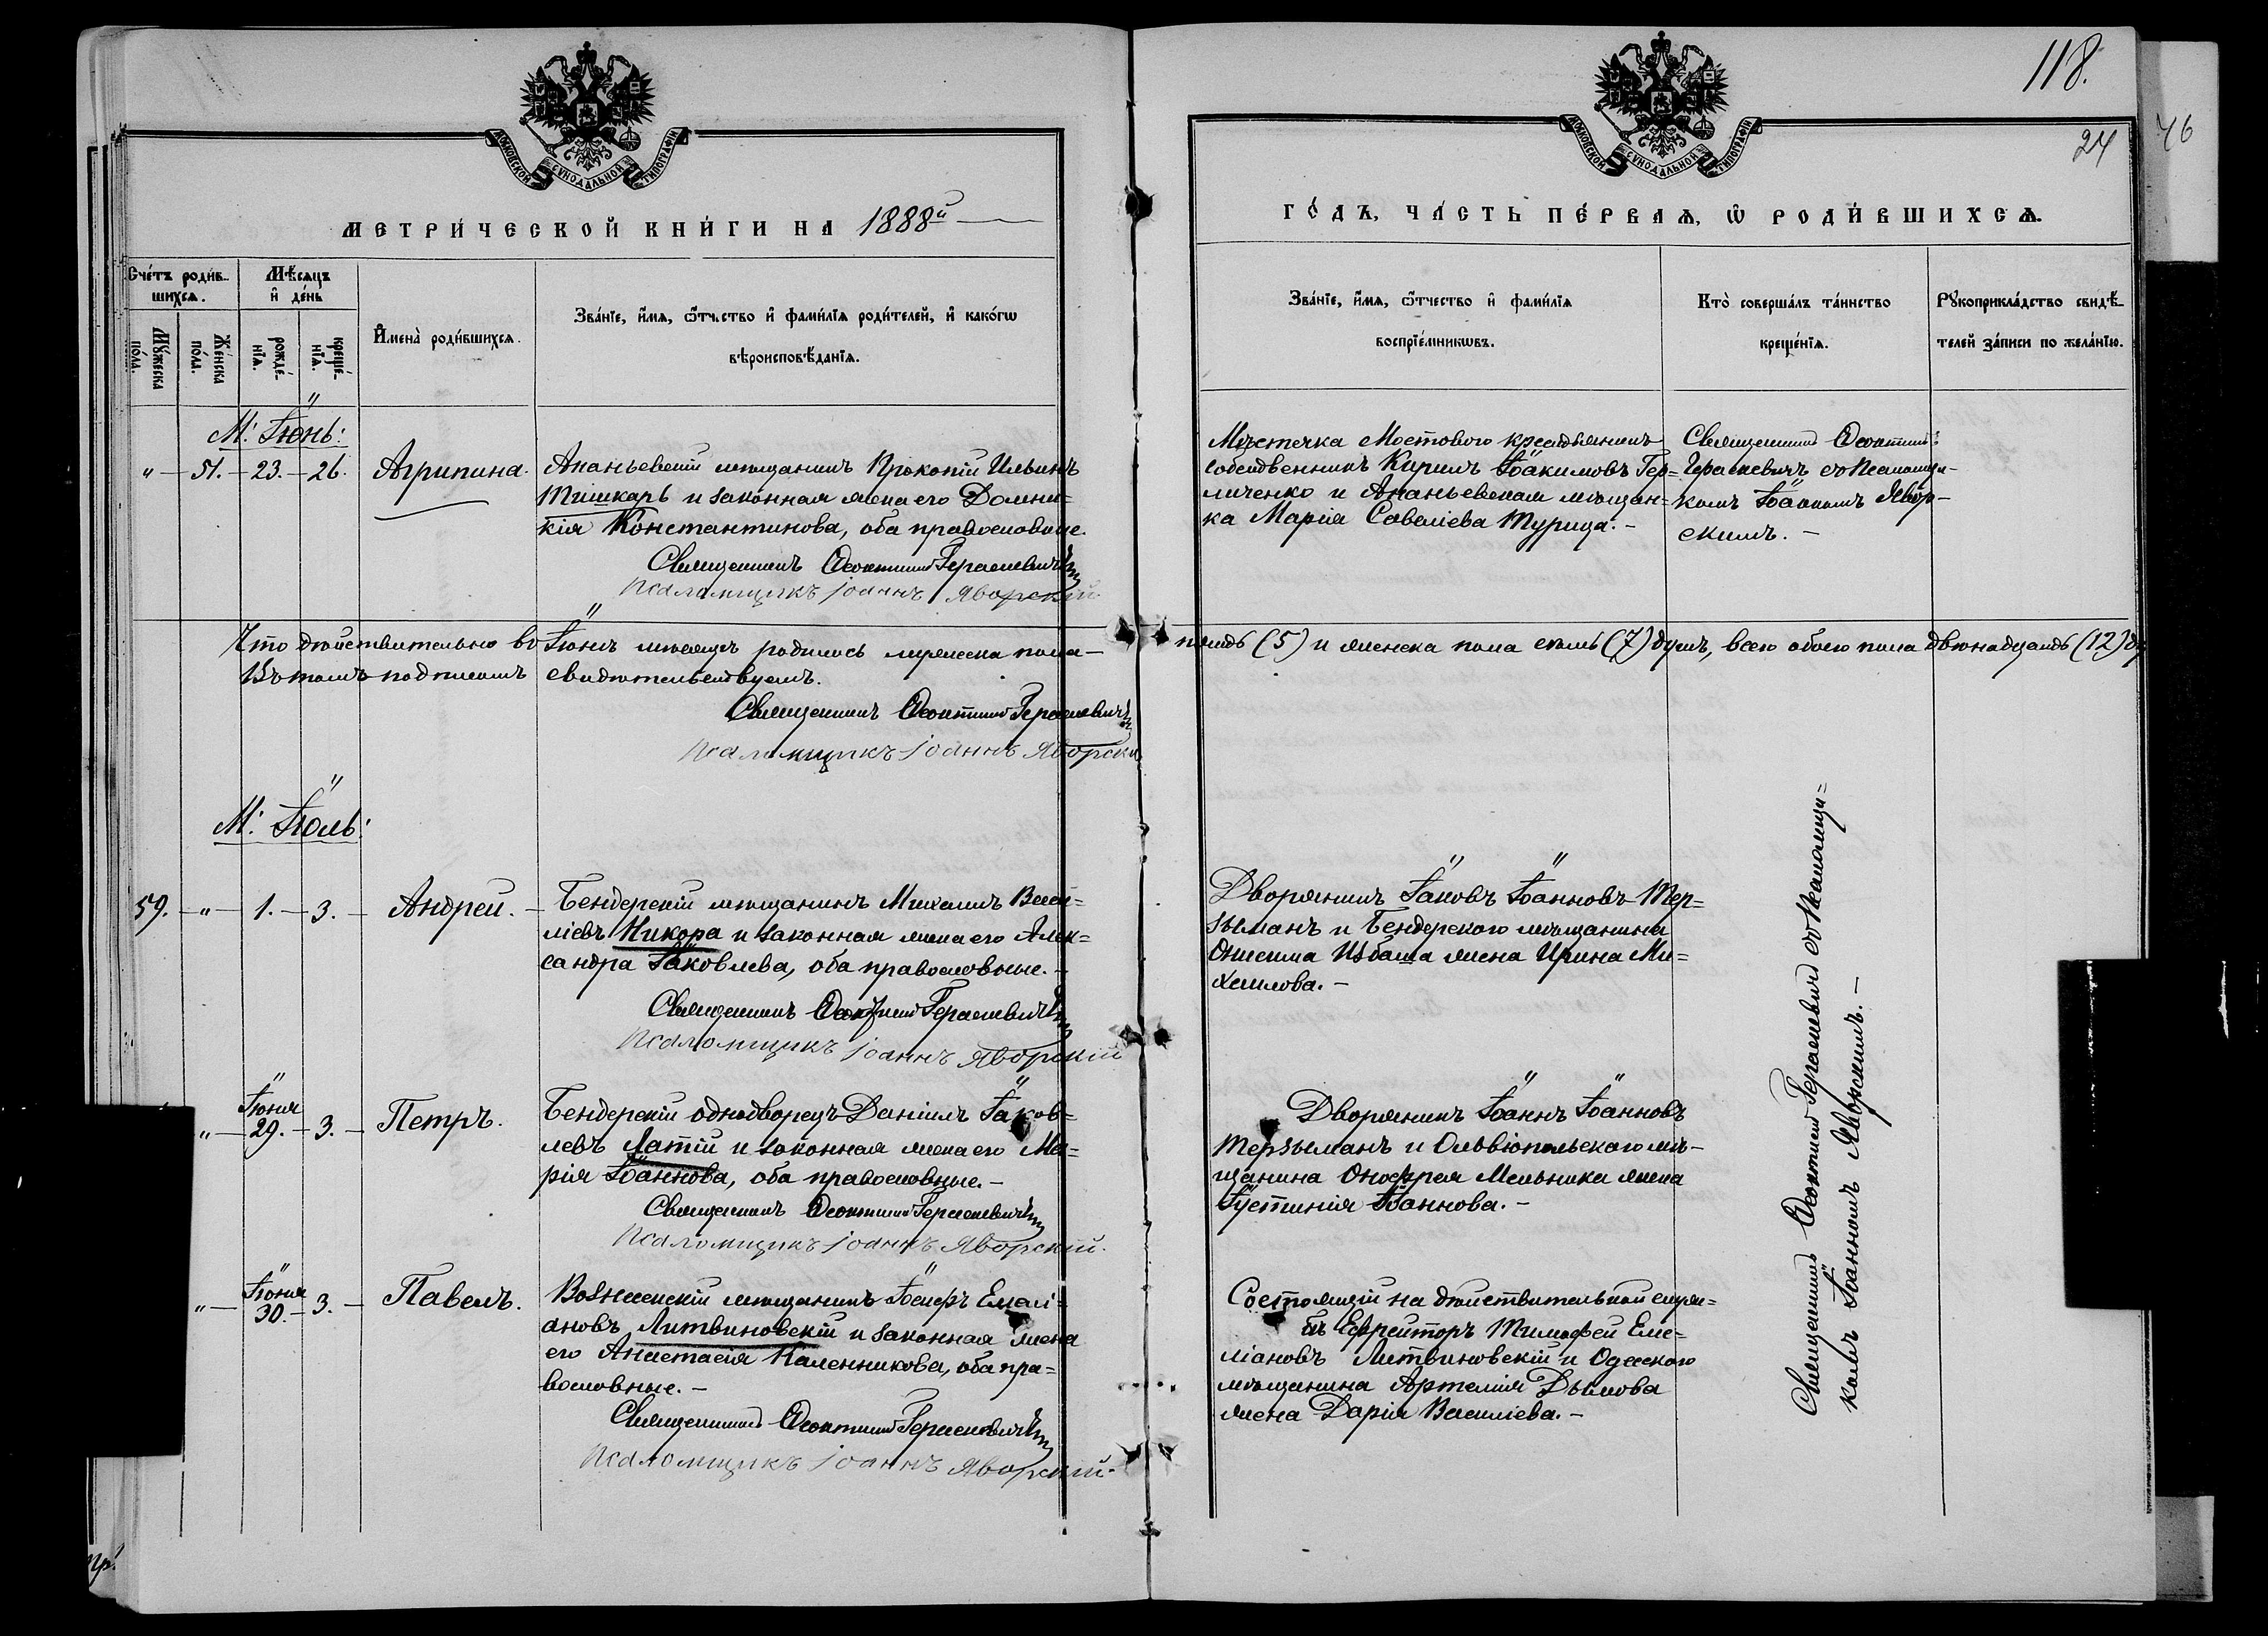 118.
24
76
МОСКОВСКОЙ СѴНОДАЛЬНОЙ ТИПОГРАФІИ
МЕТРИ́ЧЕСКОЙ КНИ́ГИ НА 1888й
Сче́тъ роди́в-
шихсѧ.
Мѣ́сѧцъ
и҆ де́нь
Мꙋ́жеска
по́ла.
Же́нска
по́ла.
рожде́-
нїѧ.
креще́-
нїѧ.
И҆мена̀ роди́вшихсѧ.
Зва́нїе, и҆́мѧ, ѻ҆́тчество и҆ фами́лїѧ роди́телей, и҆ како́гѡ
вѣроисповѣ́данїѧ.
М: Іюнь:
" — 51. — 23. — 26. Агрипина.
Ананьевскій мѣщанинъ Прокопій Ильинъ
Тишкарь и законная жена его Домни=
кія Константинова, оба православные.
Священникъ Ѳеоктистъ Герасиевичъ
Псаломщикъ Іоаннъ Яворскій.
Что дѣйствительно во Іюнѣ мѣсяцѣ родилось мужеска пола —
Въ томъ подписомъ свидѣтельствуемъ.
Священникъ Ѳеоктистъ Герасиевичъ
Псаломщикъ Іоаннъ Яворскі
М: Іюль:
59. — " — 1. — 3. — Андрей. —
Бендерскій мѣщанинъ Михаилъ Васи=
ліевъ Никора и законная жена его Алек=
сандра Іаковлева, оба православные. —
Священникъ Ѳеоктистъ Герасиевичъ
Псаломщикъ Іоаннъ Яворскій
Іюня
" — 29. — 3. — Петръ.
Бендерскій однодворецъ Даніилъ Іаков=
левъ Латій и законная жена его Ма=
рія Іоаннова, оба православные. —
Священникъ Ѳеоктистъ Герасиевичъ
Псаломщикъ Іоаннъ Яворскій.
Іюня
" — 30. — 3. — Павелъ.
Вознесенскій мѣщанинъ Іосифъ Емелі=
ановъ Литвиновскій и законная жена
его Анастасія Каленникова, оба пра=
вославные. —
Священникъ Ѳеоктистъ Герасиевичъ
Псаломщикъ Іоаннъ Яворскій.
МОСКОВСКОЙ СѴНОДАЛЬНОЙ ТИПОГРАФІИ
ГО́ДЪ, ЧА́СТЬ ПЕ́РВАѦ, Ѡ҆ РОДИ́ВШИХСѦ.
Зва́нїе, и҆́мѧ, ѻ҆́тчество и҆ фами́лїѧ
воспрїе́мникѡвъ.
Кто̀ соверша́лъ та́инство
креще́нїѧ.
Рꙋкоприкла́дство свидѣ́-
телей за́писи по жела́нїю.
Мѣстечка Мостового крестьянинъ
собственникъ Кирилъ Іоакимовъ Гер=
личенко и Ананьевская мѣщан=
ка Марія Савеліева Турица. —
Священникъ Ѳеоктистъ
Герасиевичъ съ Псаломщи-
комъ Іоанномъ Явор-
скимъ. —
пять (5) и женска пола семь (7) душъ, всего обоего пола двѣнадцать (12) ду
Дворянинъ Іаковъ Іоанновъ Тер=
зыманъ и Бендерского мѣщанина
Онисима Избаша жена Ирина Ми=
хаилова. —
Дворянинъ Іоаннъ Іоанновъ
Терзыманъ и Ольвіопольскаго мѣ-
щанина Онофрея Мельника жена
Іустинія Іоаннова. —
Состоящій на дѣйствительной служ=
бѣ Ефрейторъ Тимофей Еме=
ліановъ Литвиновскій и Одесского
мѣщанина Артемія Дымова
жена Дарія Василіева. —
Священникъ Ѳеоктистъ Герасиевичъ съ Псаломщи=
комъ Іоанномъ Яворскимъ. —